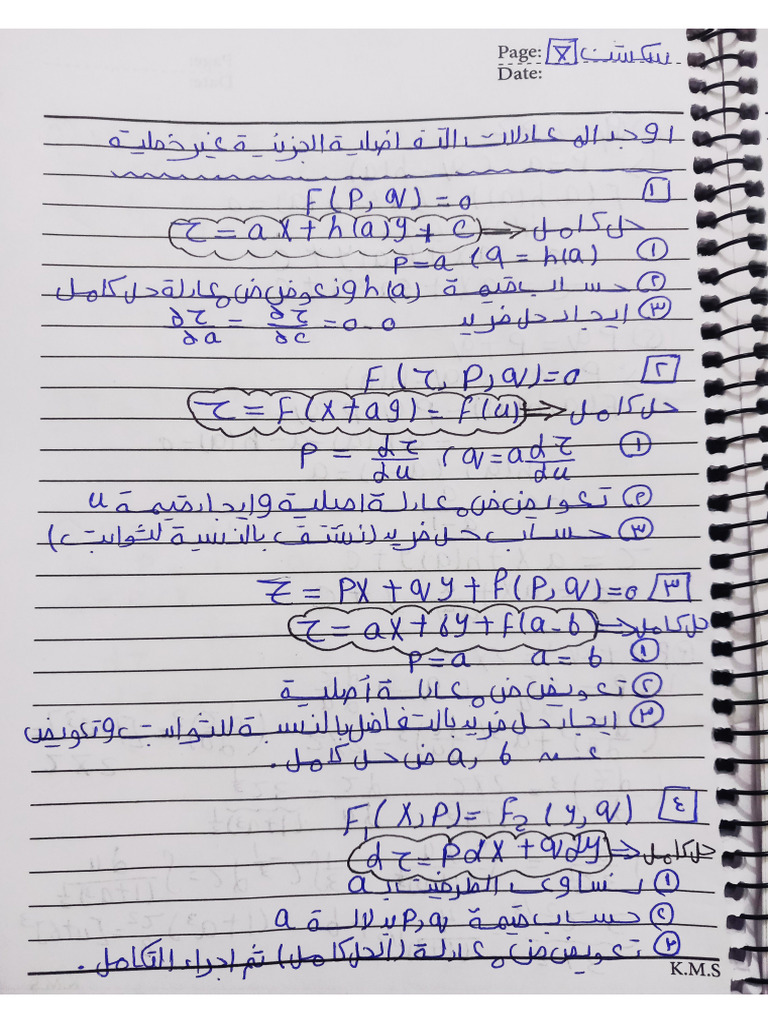 Page: 7 سكشن
Date:
اوجد المعادلات التفاضلية الجزئية غير خطية
F(P,q)=0 [1]
حل كامل ⇒ z = ax+h(a)y+c
① P=a , q=h(a)
② حساب قيمة h(a) ونعوض ض معادلة حل كامل
③ ايجاد حل فريد ∂z/∂a = ∂z/∂c = 0
F(z,P,q)=0 [٢]
حل كامل ⇒ z = F(x+ay) = f(u)
① P = dz/du , q=a dz/du
② تعواض ض معادلة اصلية وايجاد قيمة u
③ حساب حل فريد (نشتق بالنسبة للثوابت)
z = Px+qy+f(P,q)=0 [٣]
حل كامل ⇒ z=ax+by+f(a-b)
① P=a a=b
② تعويض ض معادلة أصلية
③ ايجاد حل فريد بالتفاضل بالنسبة للثوابت وتعويض
عن a, b ض حل كامل.
F₁(x,P)=F₂(y,q) [٤]
حل كامل ⇒ dz=Pdx+qdy
① نساوى الطرفين بـ a
② حساب قيمة P,q بدلالة a
③ تعويض ض معادلة (الحل كامل) ثم اجراء التكامل.
K.M.S